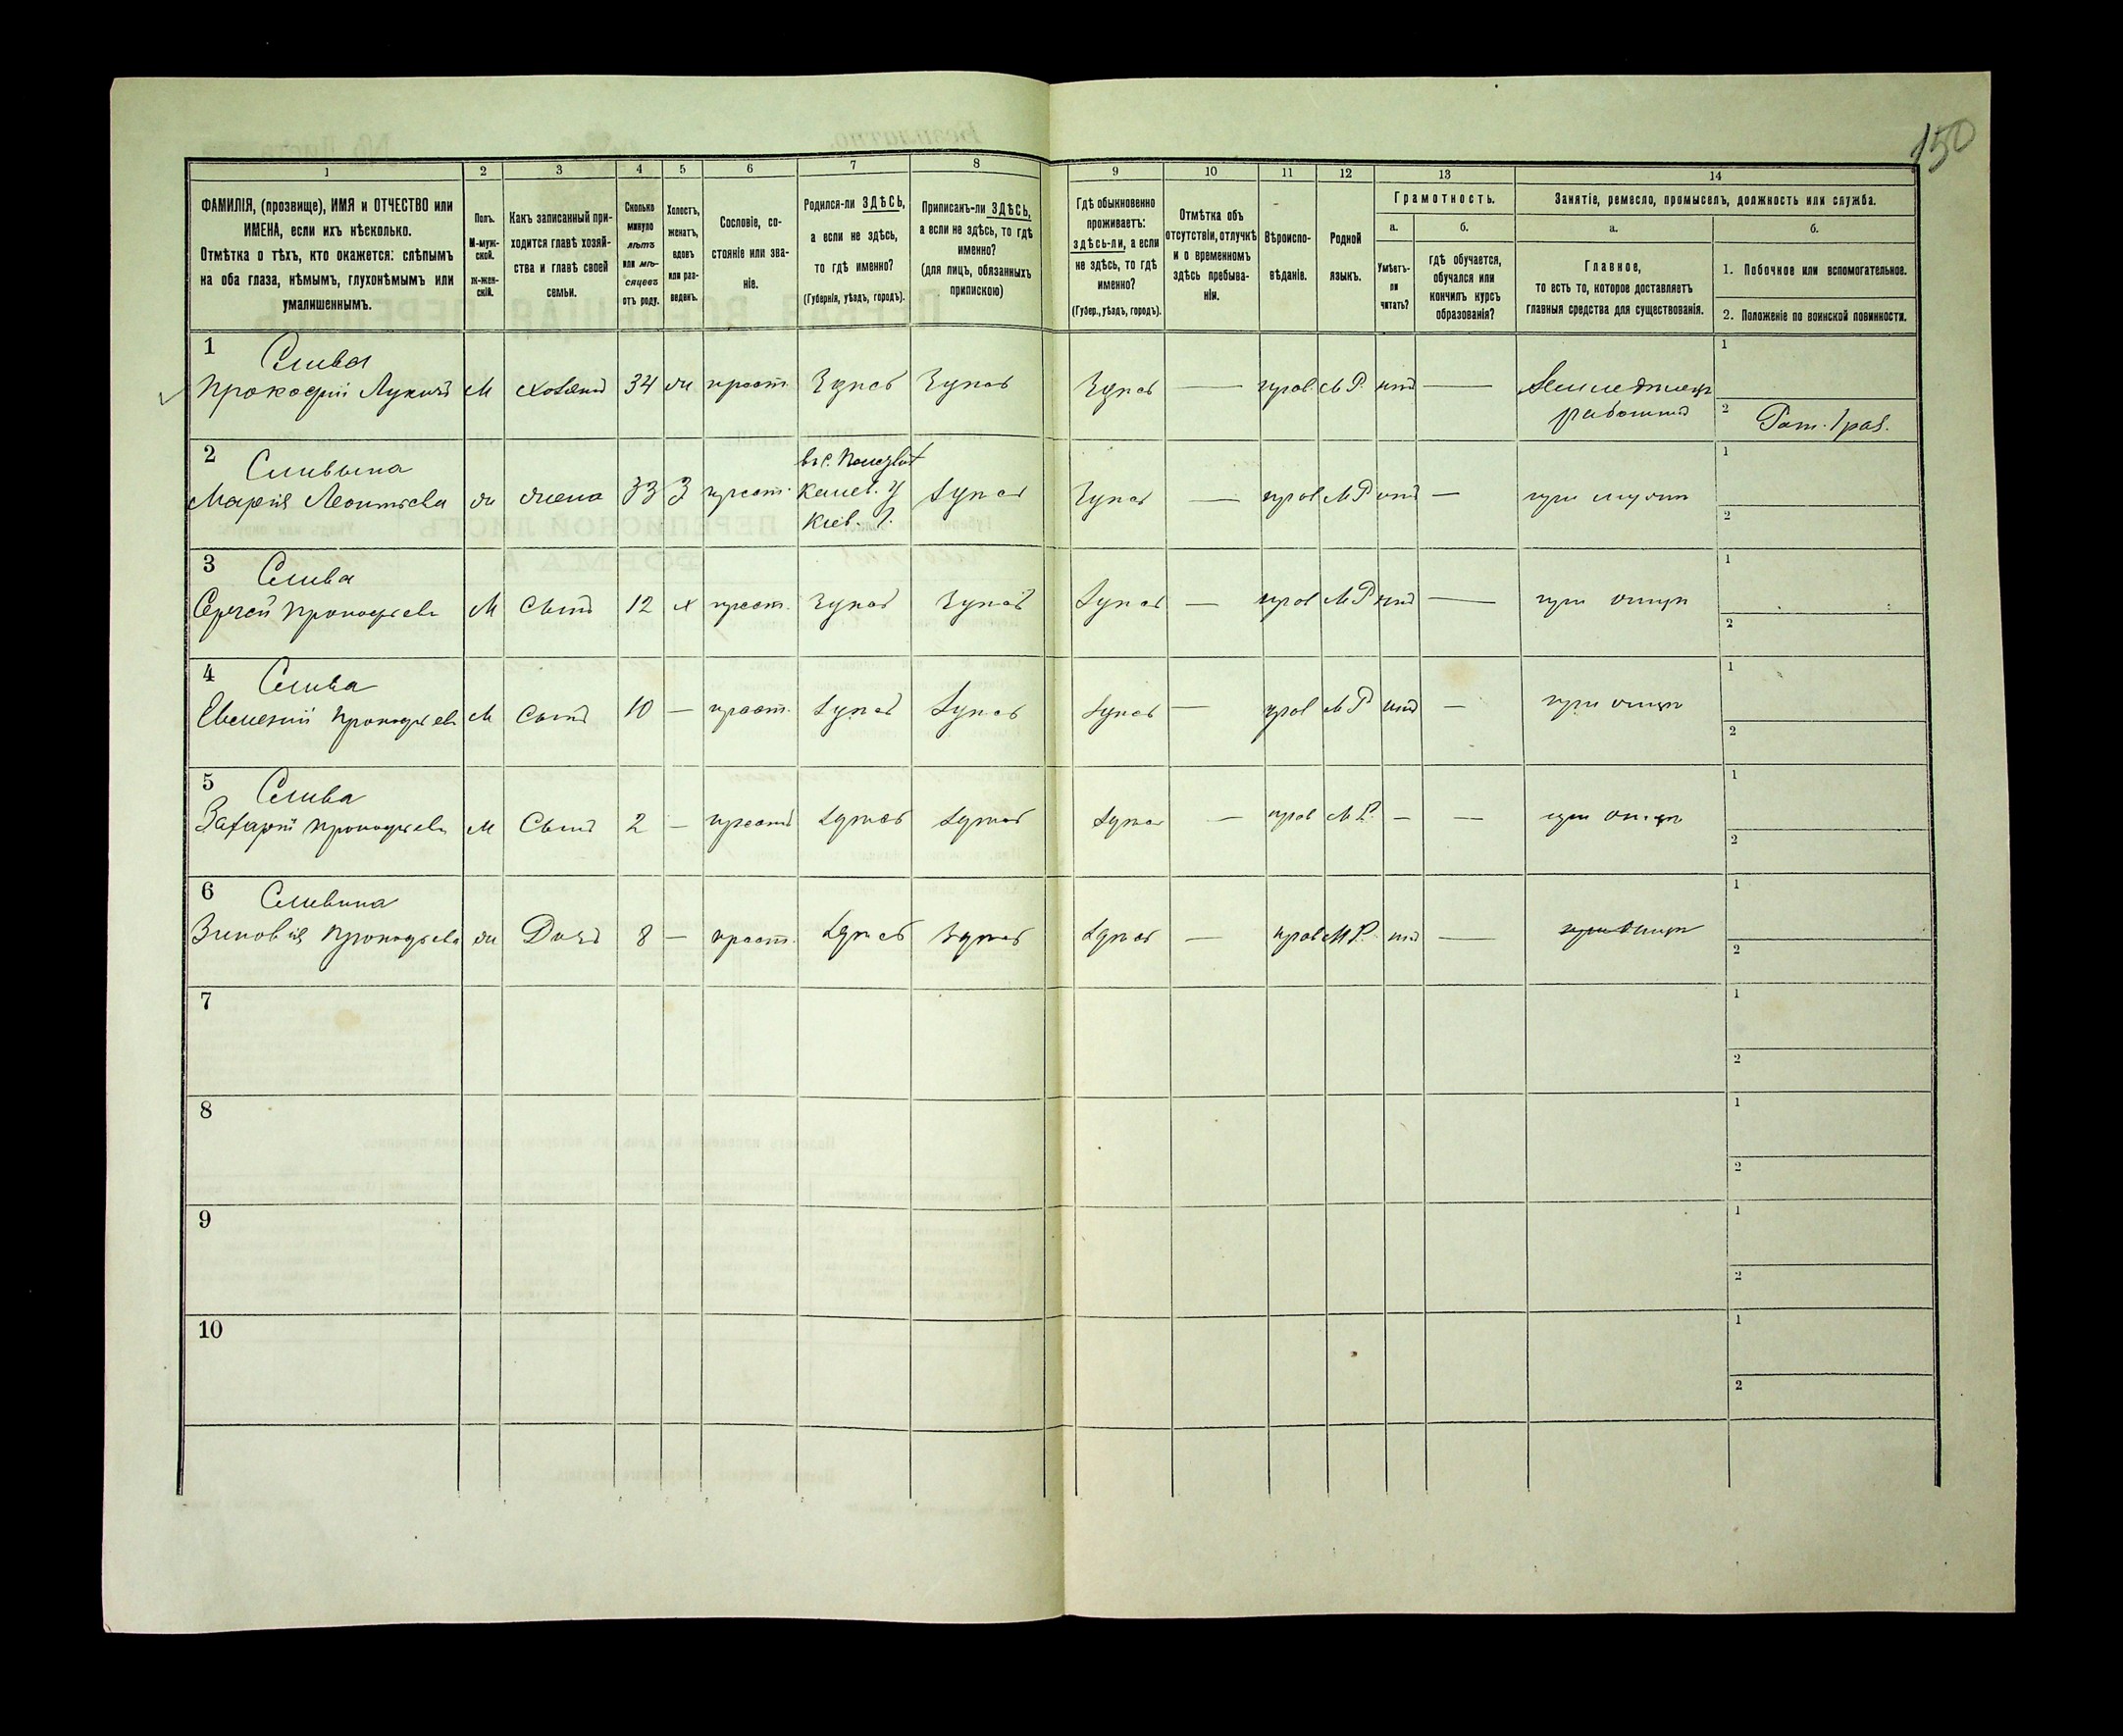 150
1 2 3 4 5 6 7 8 9 10 11 12 13 14
ФАМИЛІЯ, (прозвище), ИМЯ и ОТЧЕСТВО или
ИМЕНА, если ихъ нѣсколько.
Отмѣтка о тѣхъ, кто окажется: слѣпымъ
на оба глаза, нѣмымъ, глухонѣмымъ или
умалишеннымъ.
Полъ.
М-муж-
ской.
Ж-жен-
скій.
Какъ записанный при-
ходится главѣ хозяй-
ства и главѣ своей
семьи.
Сколько
минуло
лѣтъ
или мѣ-
сяцевъ
отъ роду.
Холостъ,
женатъ,
вдовъ
или раз-
веденъ.
Сословіе, со-
стояніе или зва-
ніе.
Родился-ли ЗДѢСЬ,
а если не здѣсь,
то гдѣ именно?
(Губернія, уѣздъ, городъ).
Приписанъ-ли ЗДѢСЬ,
а если не здѣсь, то гдѣ
именно?
(для лицъ, обязанныхъ
припискою)
Гдѣ обыкновенно
проживаетъ:
здѣсь-ли, а если
не здѣсь, то гдѣ
именно?
(Губер., уѣздъ, городъ).
Отмѣтка объ
отсутствіи, отлучкѣ
и о временномъ
здѣсь пребыва-
ніи.
Вѣроиспо-
вѣданіе.
Родной
языкъ.
Грамотность.
а.
Умѣетъ-
ли
читать?
б.
гдѣ обучается,
обучался или
кончилъ курсъ
образованія?
Занятіе, ремесло, промыселъ, должность или служба.
а.
Главное,
то есть то, которое доставляетъ
главныя средства для существованія.
б.
1. Побочное или вспомогательное.
2. Положеніе по воинской повинности.
1 Слива
Прокофій Лукичъ М хозяинъ 34 ж крест. Здѣсь Здѣсь Здѣсь — прав. М Р. нѣтъ —
работникъ
1
2 Рат. 1 раз.
2 Сливина
Марія Леонтьева ж жена 33 З крест.
Канев. у
Кіев. г.
Здѣсь Здѣсь — прав М Р нѣтъ — при мужѣ
1
2
3 Слива
Сергѣй Прокофьевъ М Сынъ 12 х крест. Здѣсь Здѣсь Здѣсь — прав М Р нѣтъ — при отцѣ
1
2
4 Слива
Прокофьевъ М Сынъ 10 — крест. Здѣсь Здѣсь Здѣсь — прав М Р нѣтъ — при отцѣ
1
2
5 Слива
Захарій Прокофьевъ М Сынъ 2 — крест Здѣсь Здѣсь Здѣсь — прав М Р. — — при отцѣ
1
2
6 Сливина
Зиновія Прокофьева ж Дочь 8 — крест. Здѣсь Здѣсь Здѣсь — прав М Р. нѣтъ — при отцѣ
1
2
7
1
2
8
1
2
9
1
2
10
1
2